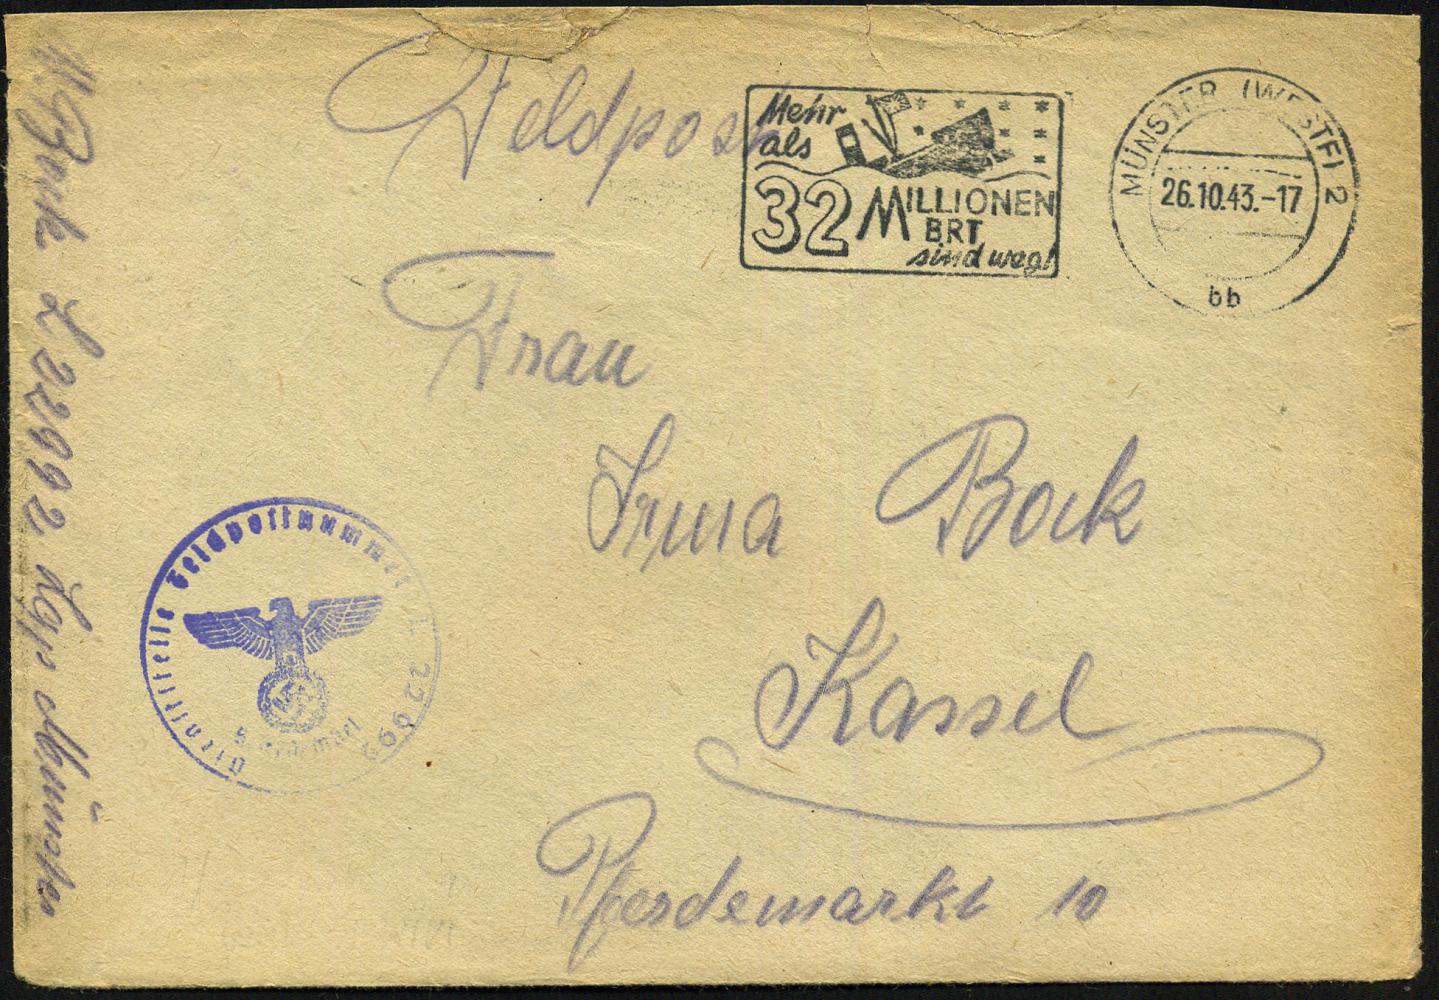 Feldpost
Mehr
als
32 MILLIONEN
BRT
sind weg!
MÜNSTER (WESTF) 2
26.10.43.-17
bb
Frau
Irma Bock
Kassel
Pferdemarkt 10
Dienststelle Feldpostnummer L 22992
Bock L 22992 Lgp Münster